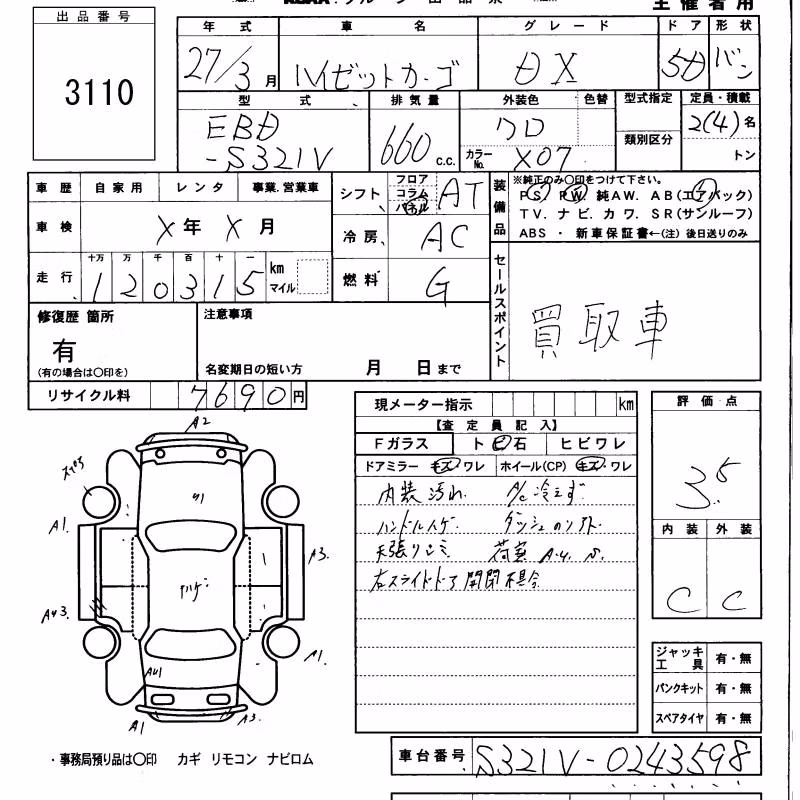 出品番号
3110
主催者用
年式 車名 グレード ドア 形状
27/3月 ハイゼットカーゴ DX 5D バン
型式 排気量 外装色 色替 型式指定 定員・積載
EBD
-S321V 660 c.c. クロ
カラーNo. X07
類別区分
2(4)名
トン
車歴 自家用 レンタ 事業.営業車
シフト フロア コラム パネル AT
車検 X年 X月
冷房 AC
走行 十万 万 千 百 十 一
120315 km マイル
燃料 G
装備品
※純正のみ〇印をつけて下さい。
PS. PW. 純AW. AB(エアバック)
TV. ナビ. カワ. SR(サンルーフ)
ABS ・ 新車保証書←(注) 後日送りのみ
修復歴 箇所
有
(有の場合は〇印を)
注意事項
名変期日の短い方 月 日まで
セールスポイント
買取車
リサイクル料 7690円
現メーター指示 km
【査定員記入】
Fガラス ト ビ 石 ヒビワレ
ドアミラー キズ ワレ ホイール(CP) キズ.ワレ
内装汚れ A/C冷えず
ハンドルハゲ
天張り
右スライドドア開閉不具合
評価点
3.5
内装 外装
C C
A2
A1.
A3.
A1.
A1
A3.
ジャッキ工具 有・無
パンクキット 有・無
スペアタイヤ 有・無
・事務局預り品は〇印 カギ リモコン ナビロム
車台番号 S321V-0243598